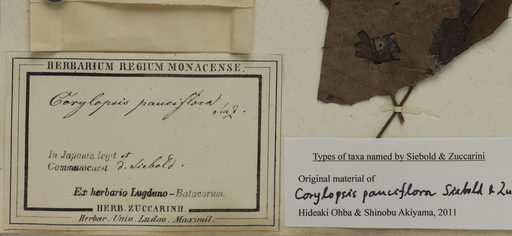 HERBARIUM REGIUM MONACENSE.
Corylopsis pauciflora
In Japonia legit et
Communicavit d. Siebold.
Ex herbario Lugduno-Batavorum.
HERB. ZUCCARINII
Herbar. Univ. Ludov. Maximil.
Types of taxa named by Siebold & Zuccarini
Original material of
Corylopsis pauciflora Siebold & Zu
Hideaki Ohba & Shinobu Akiyama, 2011